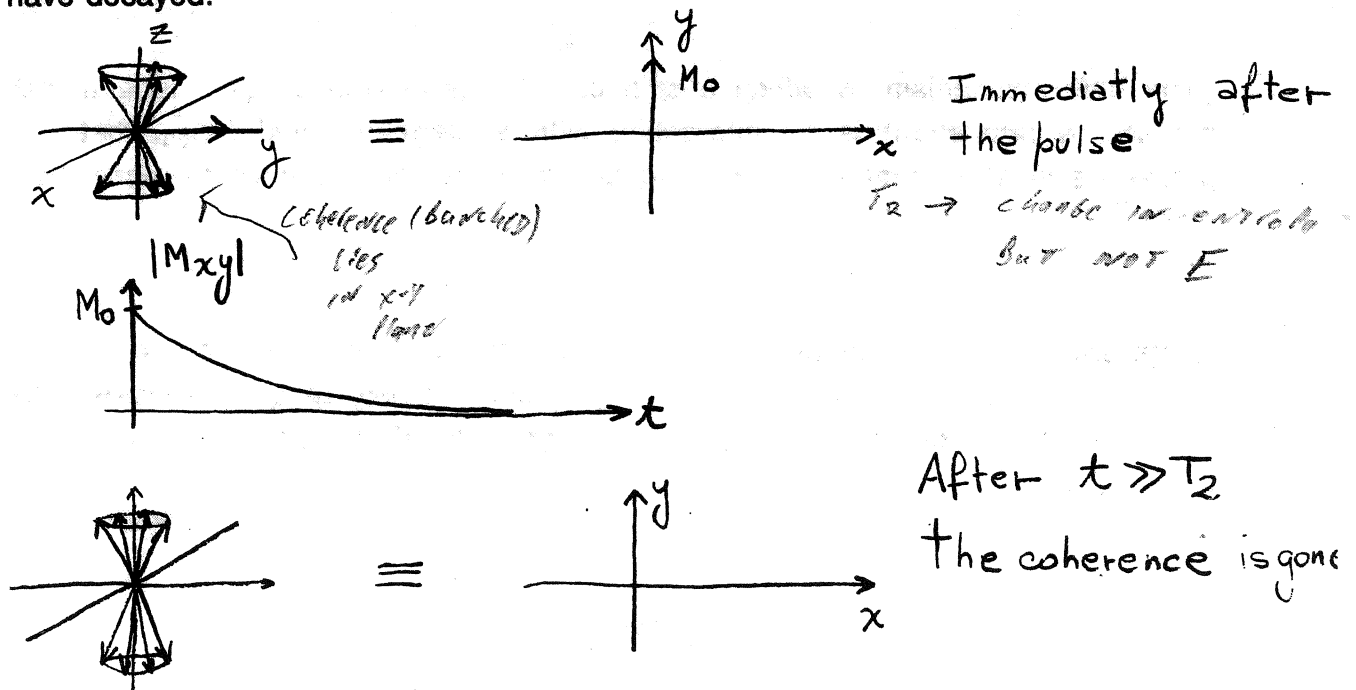 have decayed.
z
y
x
≡
y
M₀
x
Immediatly after
the pulse
T₂ → change in entropy
But not E
Coherence (bunched)
lies
in x-y
plane
|Mxy|
M₀
t
≡
y
x
After t ≫ T₂
the coherence is gone